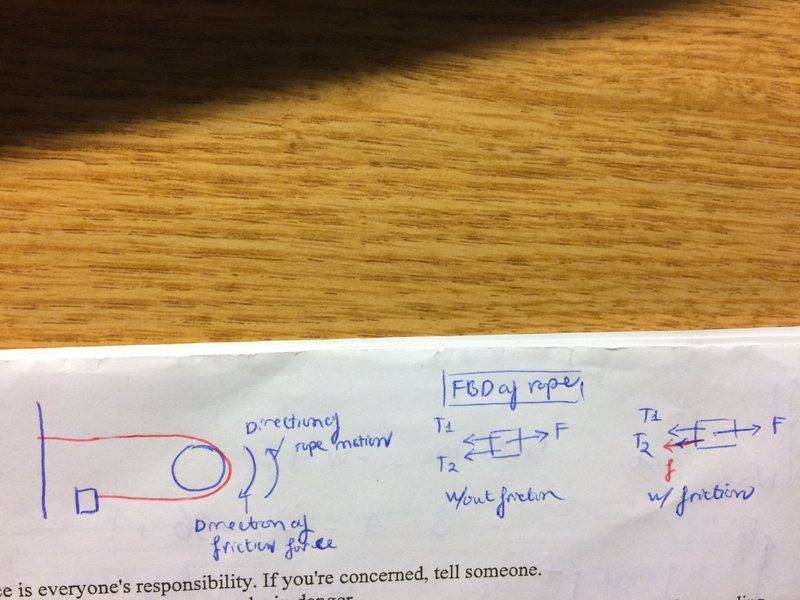 Direction of
rope motion
Direction of
friction force
FBD of rope
T1
F
T2
w/out friction
T1
F
T2
f
w/ friction
ce is everyone's responsibility. If you're concerned, tell someone.